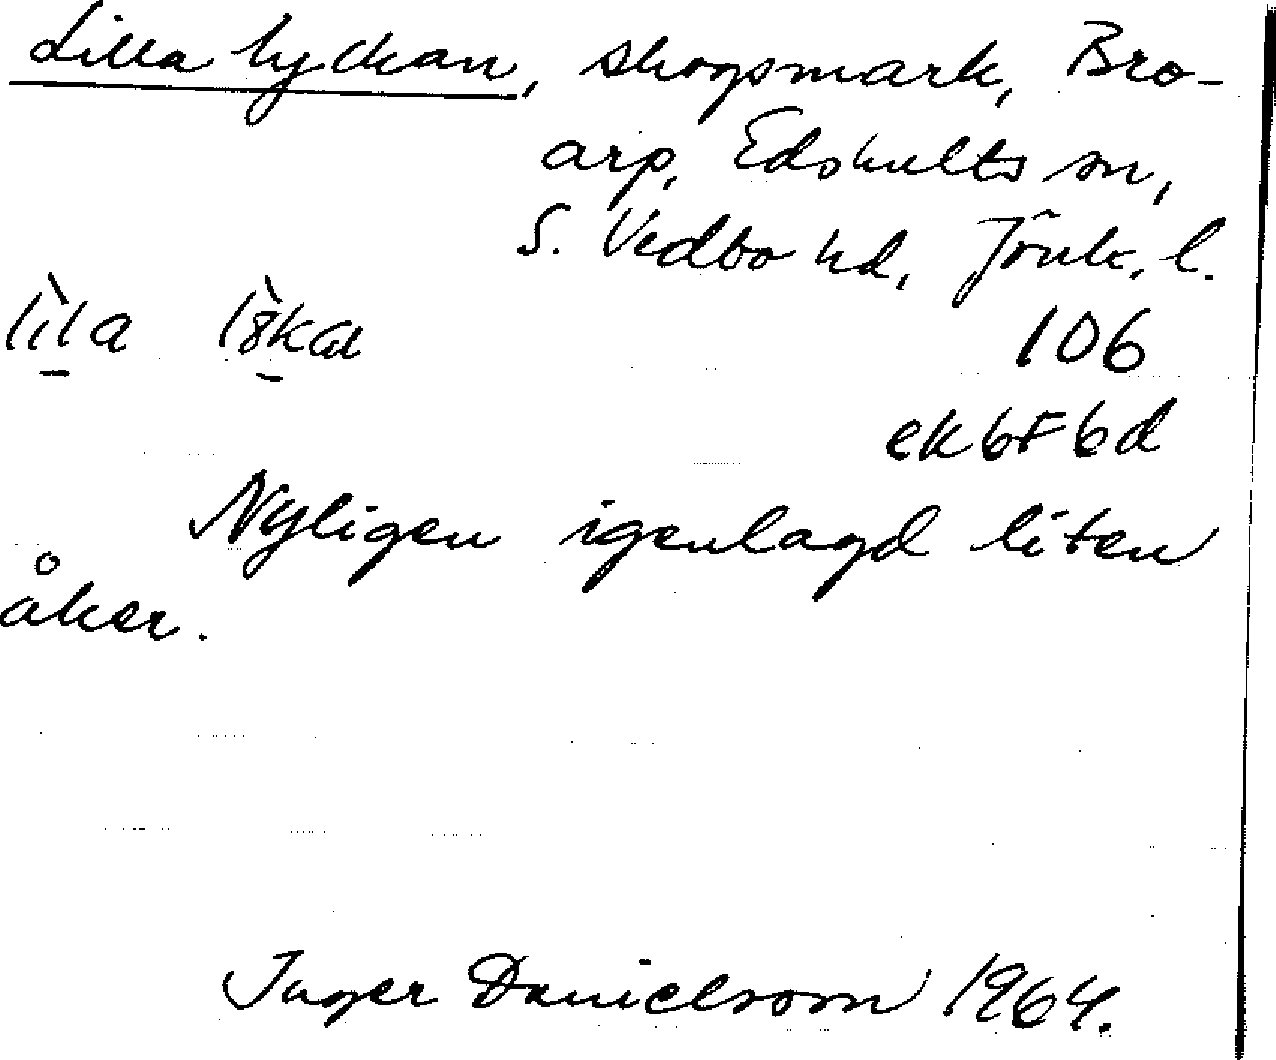 Lilla lyckan, skogsmark, Bro-
arp, Edshults sn,
S. Vedbo hd, Jönk. l.
106
ek 6F6d
Nyligen igenlagd liten
åker.
Inger Danielsson 1964.